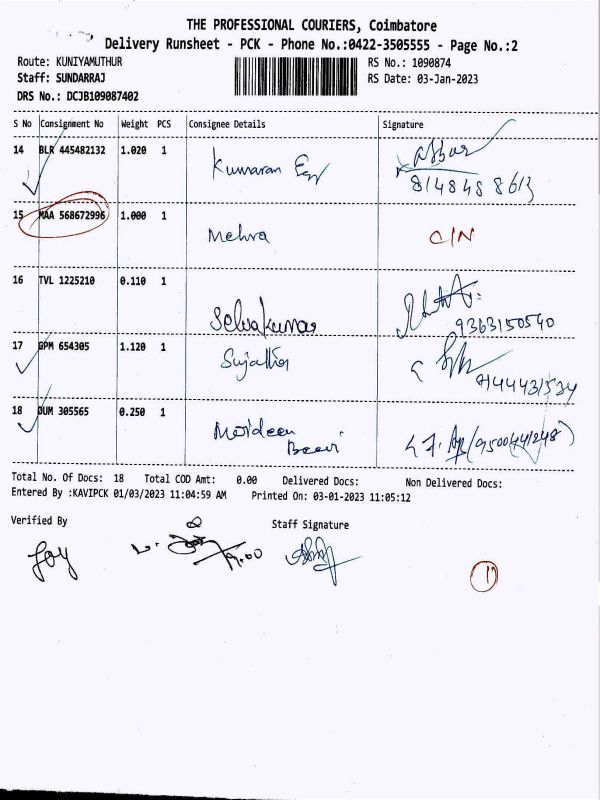 THE PROFESSIONAL COURIERS, Coimbatore
Delivery Runsheet - PCK - Phone No.:0422-3505555 - Page No.:2
Route: KUNIYAMUTHUR RS No.: 1090874
Staff: SUNDARRAJ RS Date: 03-Jan-2023
DRS No.: DCJB109087402
S No Consignment No Weight PCS Consignee Details Signature
14 BLR 445482132 1.020 1 Kumaran
8148488613
15 MAA 568672996 1.000 1 Mehra C/N
16 TVL 1225210 0.110 1 Selvakumar
9363150540
17 GPM 654305 1.120 1 Sujatha
18 DUM 305565 0.250 1 Moideen
Total No. Of Docs: 18 Total COD Amt: 0.00 Delivered Docs: Non Delivered Docs:
Entered By :KAVIPCK 01/03/2023 11:04:59 AM Printed On: 03-01-2023 11:05:12
Verified By Staff Signature
Joy
1